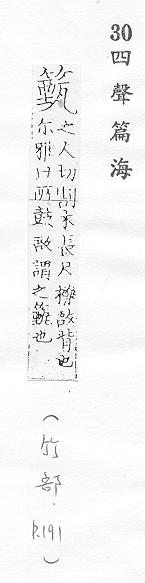 30 四聲篇海
籈
之人切木長尺櫟敔背也
尔雅曰所鼓敔謂之籈也
(竹部. P.191)